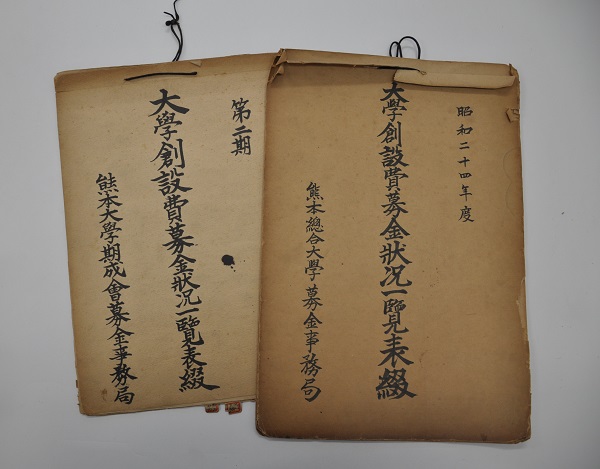 昭和二十四年度
大學創設費募金狀況一覽表綴
熊本總合大學募金事務局
第二期
大學創設費募金狀況一覽表綴
熊本大學期成會募金事務局